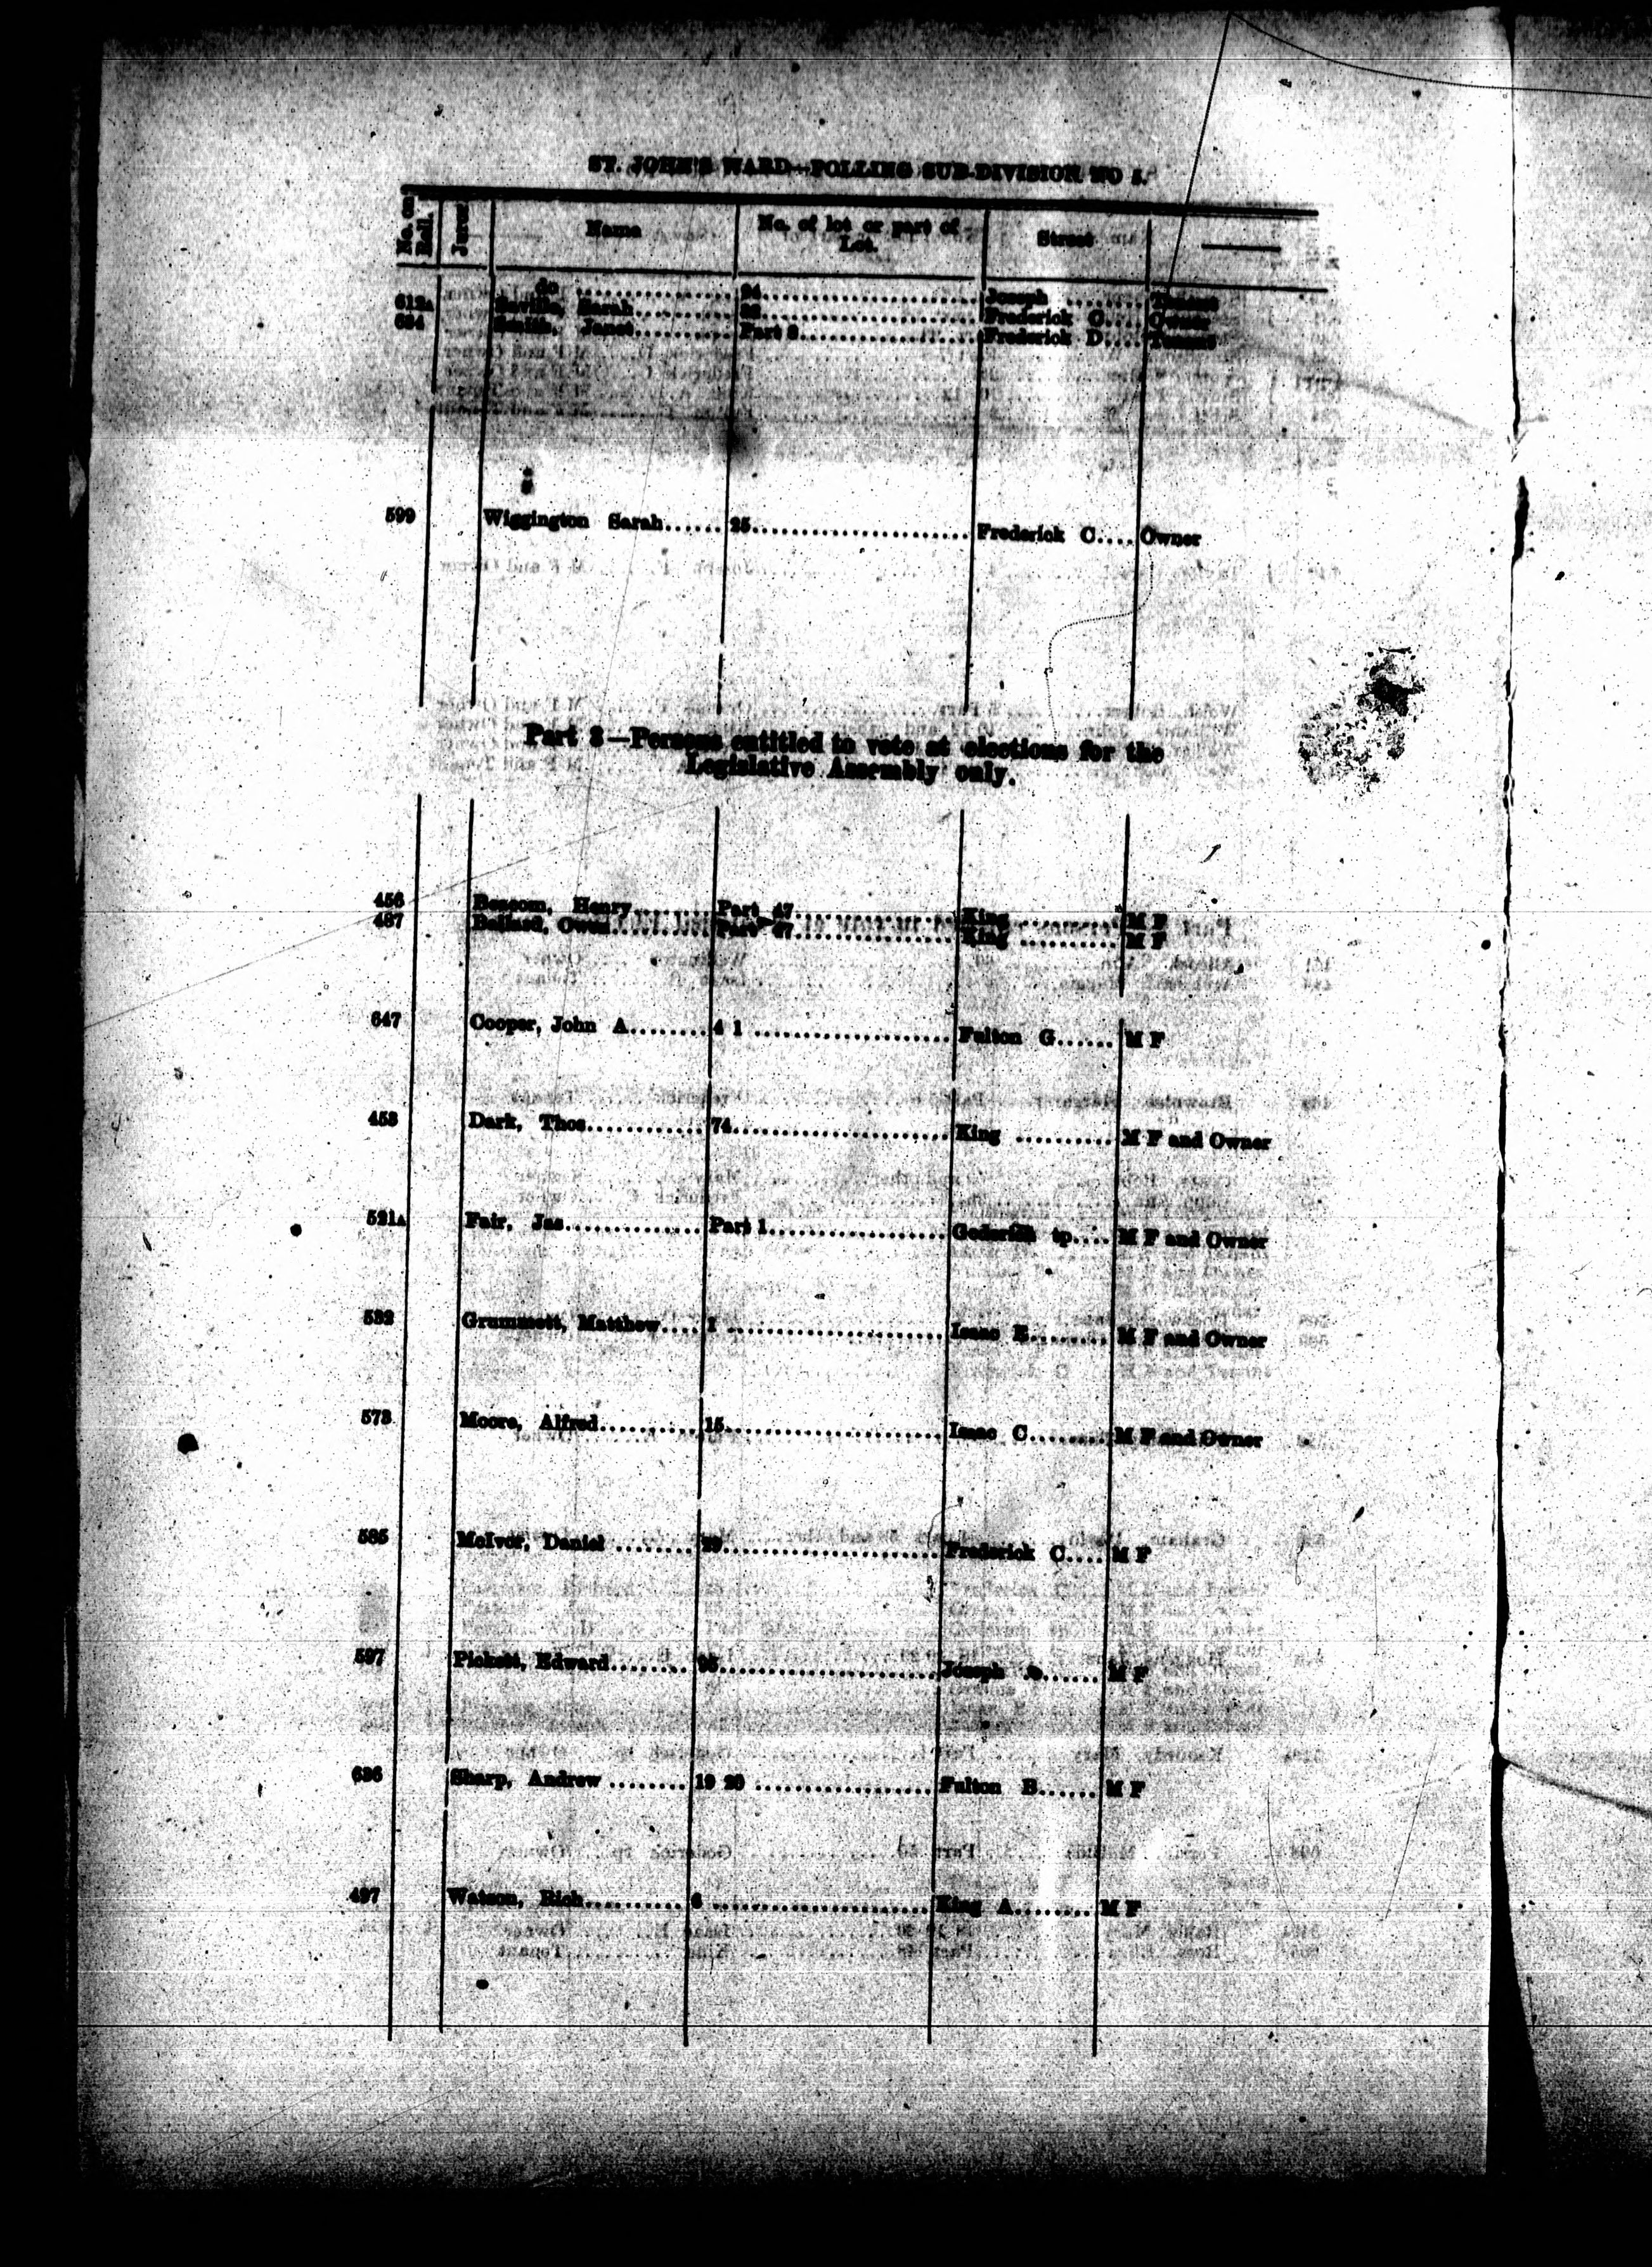 ST. JOHN'S WARD—POLLING SUB-DIVISION NO 5.
No. on Roll. Jurors Name No. of lot or part of Lot. Street
do ............ 24 ............ Joseph ........ Tenant
612A Saville, Sarah ............ Frederick C.... Owner
634 Smith, Janet .......... Part 8 ............ Frederick D.... Tenant
599 Wiggington Sarah...... 25 ............ Frederick C.... Owner
Part 2—Persons entitled to vote at elections for the
Legislative Assembly only.
456 Henry........ Part 47 ............ King .......... M F
487 Ballard, Owen.......... Part 47 ............ King .......... M F
647 Cooper, John A........ 4 1 ............ Fulton G...... M F
453 Dark, Thos............ 74 ............ King .......... M F and Owner
521A Fair, Jas............. Part 1 ............ Goderich tp.... M F and Owner
532 Grummett, Matthew.... 1 ............ Isaac E........ M F and Owner
573 Moore, Alfred.......... 15 ............ Isaac C........ M F and Owner
585 McIvor, Daniel ........ 29 ............ Frederick C.... M F
597 Pickett, Edward........ ............ Joseph ...... M F
636 Sharp, Andrew ........ 19 20 ............ Fulton B...... M F
497 Watson, Rich.......... 6 ............ King A........ M F